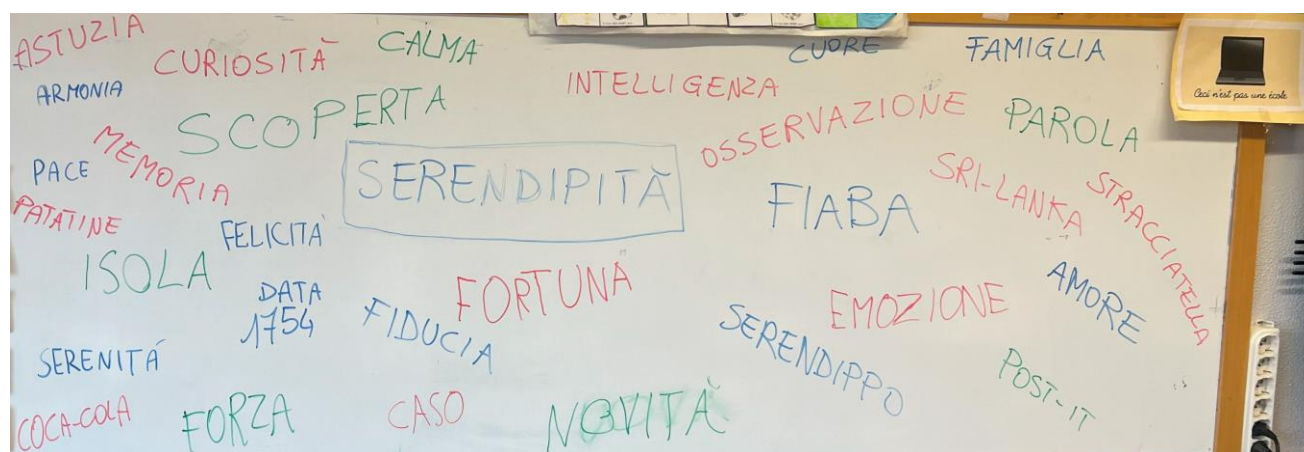 ASTUZIA
CURIOSITÀ
CALMA
CUORE
FAMIGLIA
Ceci n'est pas une école
ARMONIA
INTELLIGENZA
SCOPERTA
OSSERVAZIONE
PAROLA
MEMORIA
PACE
SERENDIPITÀ
FIABA
SRI-LANKA
STRACCIATELLA
PATATINE
FELICITÁ
ISOLA
DATA
1754
FORTUNA
EMOZIONE
AMORE
FIDUCIA
SERENDIPPO
SERENITÁ
POST-IT
COCA-COLA
FORZA
CASO
NOVITÀ